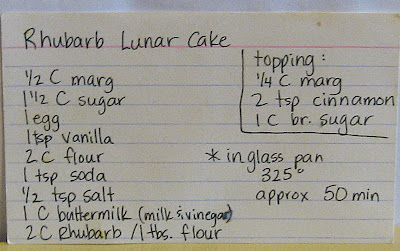 Rhubarb Lunar Cake
1/2 C marg
1 1/2 C sugar
1 egg
1 tsp vanilla
2 C flour
1 tsp soda
1/2 tsp salt
1 C buttermilk (milk & vinegar)
2 C Rhubarb / 1 tbs. flour
topping:
1/4 C marg
2 tsp cinnamon
1 C br. sugar
* in glass pan
325°
approx 50 min